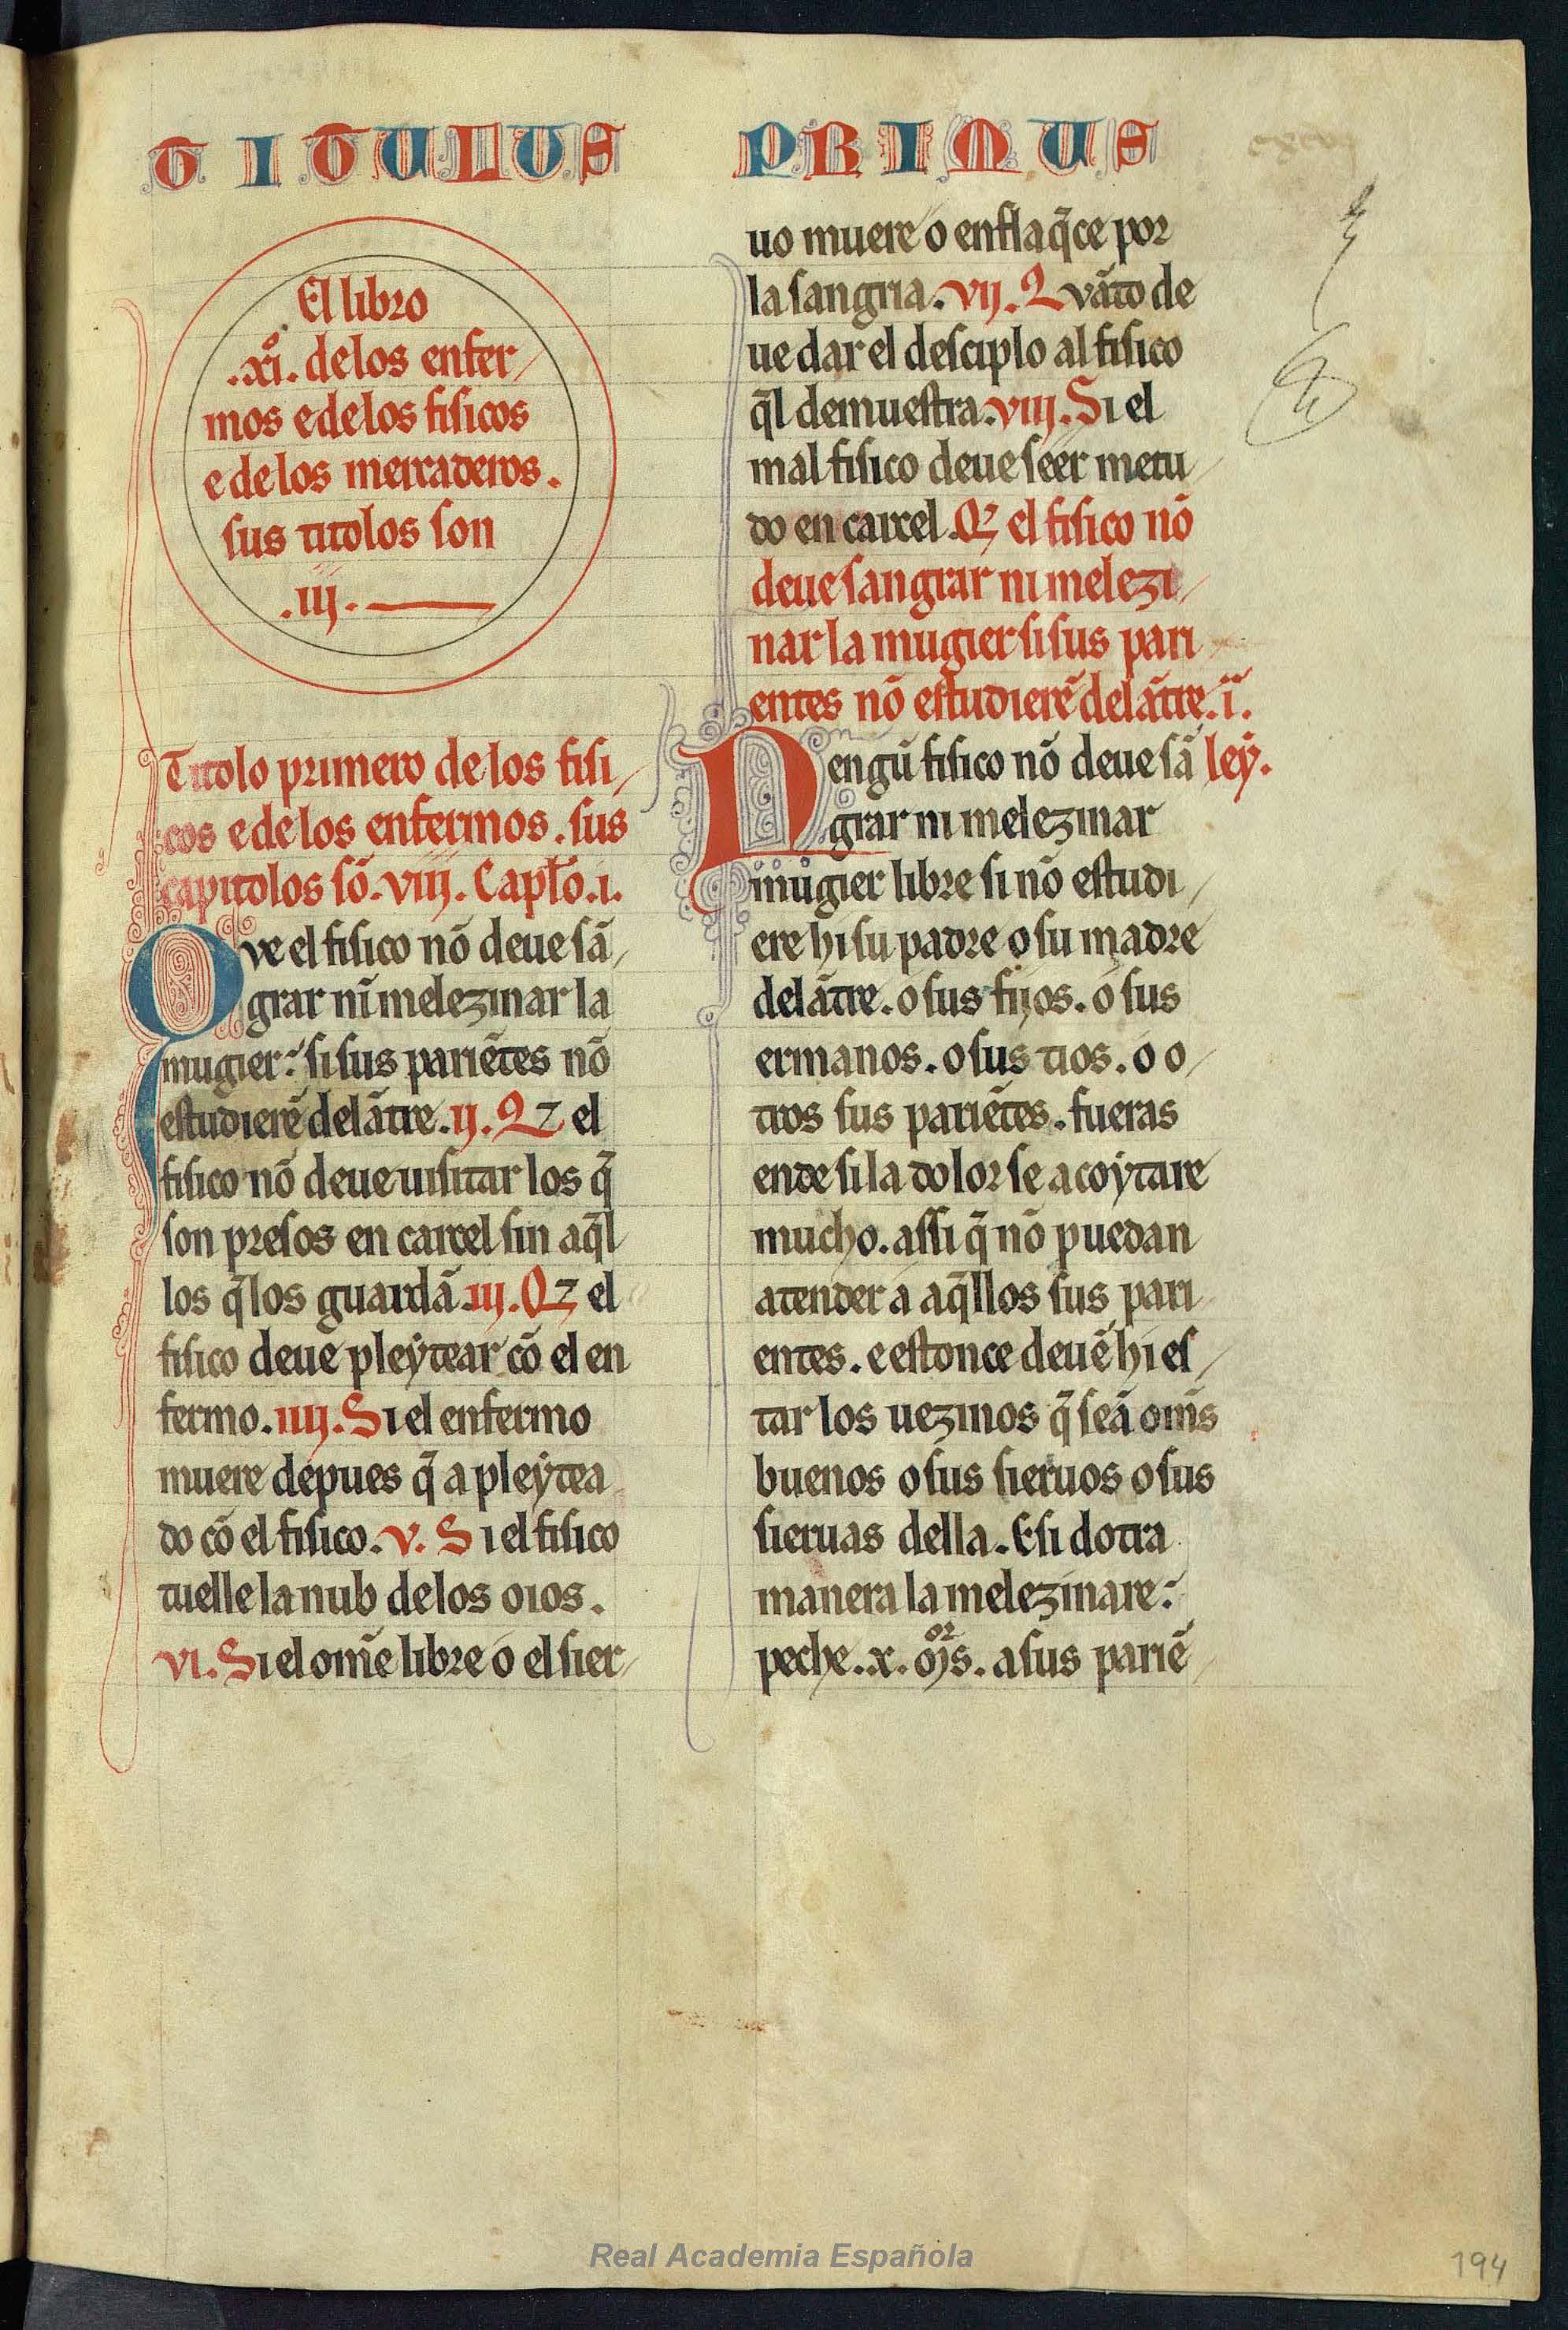 TITULUS PRIMUS
El libro
.xıº. delos enfer/
mos e delos fisicos
e delos mercaderos.
sus titolos son
.iij.
Titolo primero delos fisi/
cos e delos enfermos. sus
capitolos sō. viij. Capło. i.
Que el fisico nō deue sā/
grar nī melezinar la
mugier: si sus pariētes nō
estudierē delātre. ij. Qꝫ el
fisico nō deue uisitar los q̄
son presos en carcel sin aq̄l
los q̄ los guardā. iij. Qꝫ el
fisico deue pleẏtear cō el en
fermo. iiij. Si el enfermo
muere depues q̄ a pleẏtea
do cō el fisico. v. Si el fisico
tuelle la nub delos oios.
vi. Si el om̄e libre o el sier/
uo muere o enflaq̄ce por
la sangria. vij. Quāto de
ue dar el desciplo al fisico
q̄l demuestra. viij. Si el
mal fisico deue seer metu/
do en carcel. Qꝫ el fisico nō
deue sangrar ni melezi/
nar la mugier si sus pari
entes nō estudierē delātre. i.ª
Nengū fisico nō deue sā leẏ.
grar ni melezinar
mugier libre si nō estudi/
ere hi su padre o su madre
delātre. o sus fijos. o sus
ermanos. o sus tios. o o/
tros sus pariētes. fueras
ende si la dolor se acoẏtare
mucho. assi q̄ nō puedan
atender a aq̄llos sus pari
entes. e estonce deuē hi es/
tar los uezinos q̄ seā om̄s
buenos o sus sieruos o sus
sieruas della. E si dotra
manera la melezinare:
peche. x. m̃rs. a sus pariē/
Real Academia Española
194